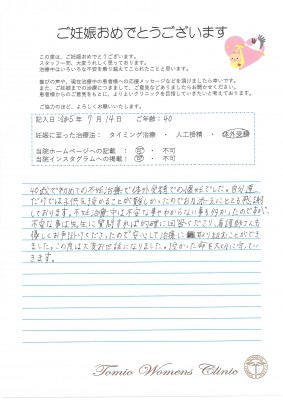 ご妊娠おめでとうございます
この度は、ご妊娠おめでとうございます。
スタッフ一同、大変うれしく思っております。
治療中はいろいろな不安を乗り越えてこられたことと思います。
喜びの声や、現在治療中の患者様への応援メッセージなどを頂けましたら幸いです。
また、ご妊娠までの治療につきまして、ご意見などありましたらお聞かせください。
患者様からのご意見をもとに、よりよいクリニックを目指していきたいと考えております。
ご協力のほど、よろしくお願いいたします。
記入日：令和5年7月14日 ご年齢：40
妊娠に至った治療法： タイミング治療 ・ 人工授精 ・ 体外受精
当院ホームページへの記載： 可 ・ 不可
当院インスタグラムへの掲載： 可 ・ 不可
40歳で初めての不妊治療で体外受精での妊娠でした。自分達
だけでは子供を授かることが難しかったのでお力添えにとても感謝
しております。不妊治療中は不安な事やわからない事も多かったのですが、
不安な事は先生に質問すれば的確に回答くださり、看護師さんも
優しくお声掛けくださったので安心して治療に取り組むことができ
ました。この度は大変お世話になりました。授かった命を大切に守ってい
きます。
Tomio Womens Clinic